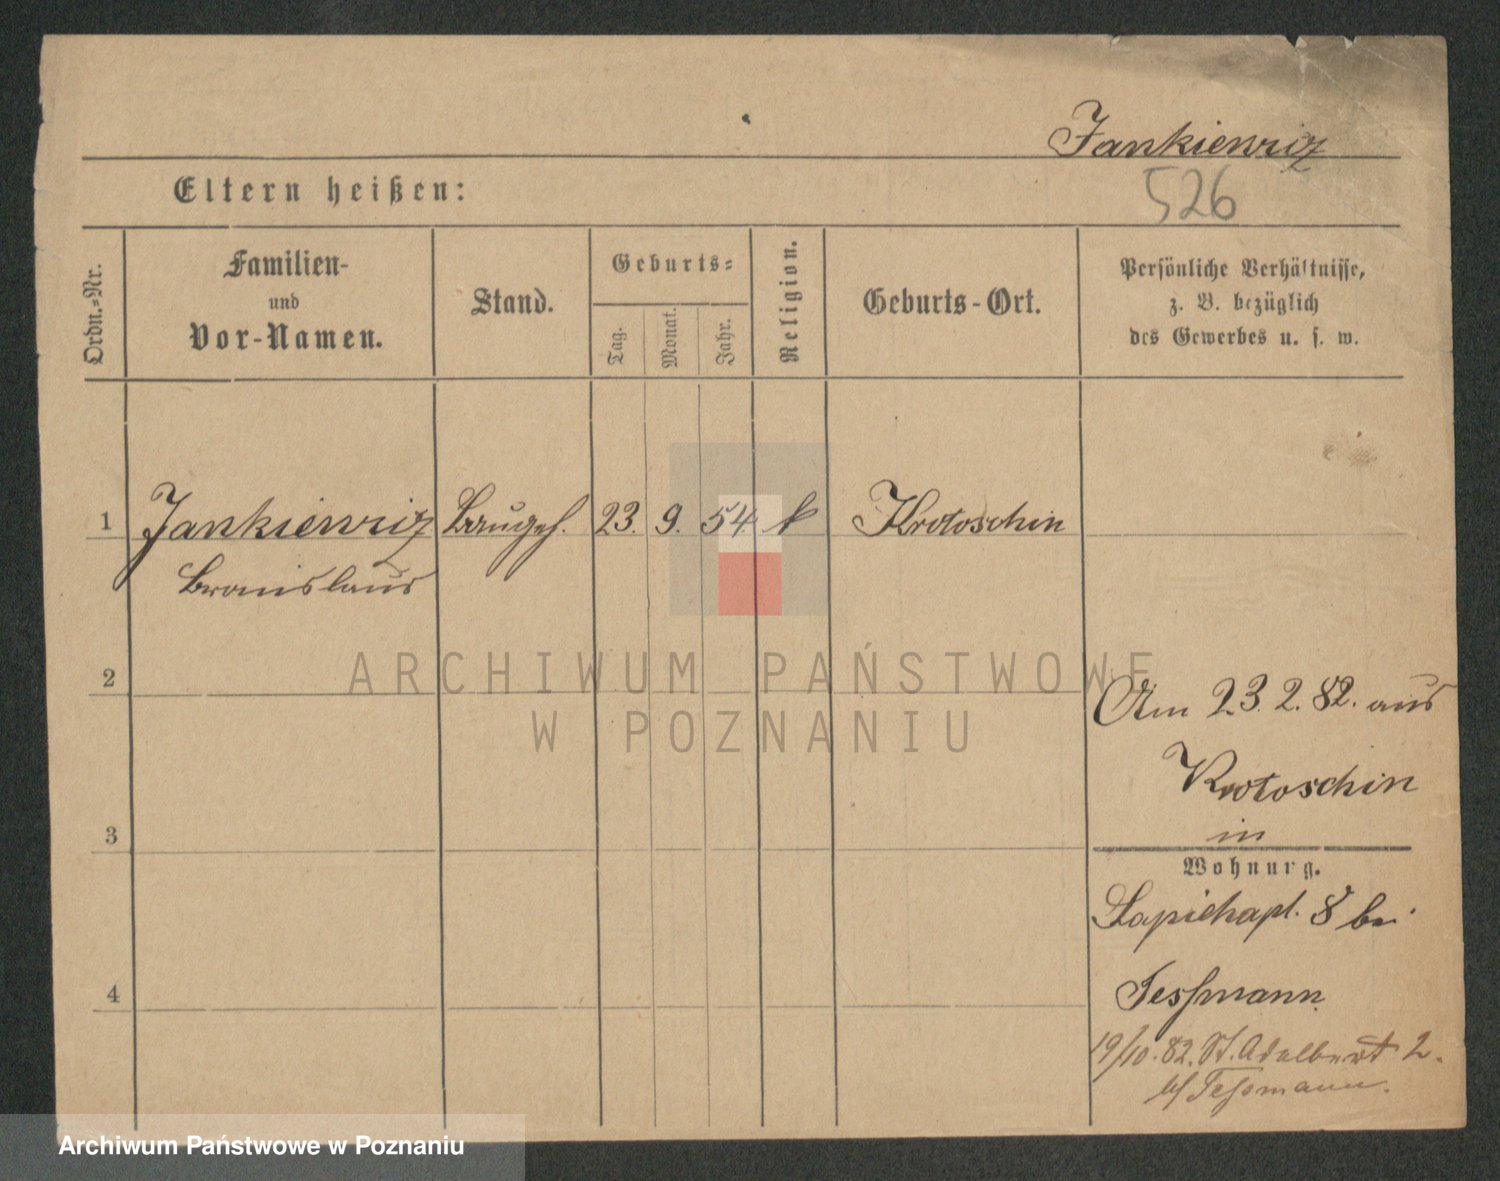 Jankiewicz
526
Eltern heißen:
Ordn.=Nr.
Familien-
und
Vor-Namen.
Stand.
Geburts=
Tag.
Monat.
Jahr.
Religion.
Geburts-Ort.
Persönliche Verhältnisse,
z. B. bezüglich
des Gewerbes u. s. w.
1 Jankiewicz Baugeh. 23. 9. 54. k Krotoschin
Bronislaus
2
Am 23. 2. 82. aus
Krotoschin
3
in
Wohnung.
Sapiehapl. 8 bei
4
Tessmann
19/10. 82. St. Adalbert 2.
b/ Tessmann.
ARCHIWUM PAŃSTWOWE
W POZNANIU
Archiwum Państwowe w Poznaniu